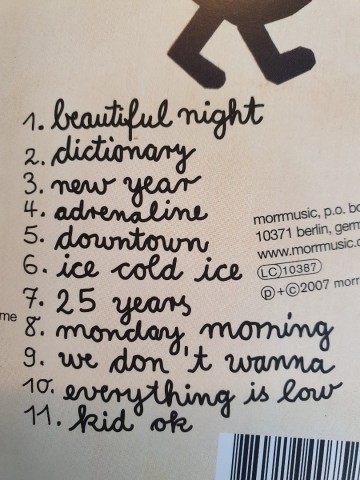 1. beautiful night
2. dictionary
3. new year
4. adrenaline
5. downtown
6. ice cold ice
7. 25 years
8. monday morning
9. we don't wanna
10. everything is low
11. kid ok
me
morrmusic, p.o. bo
10371 berlin, germ
www.morrmusic.c
LC 10387
℗+©2007 morr